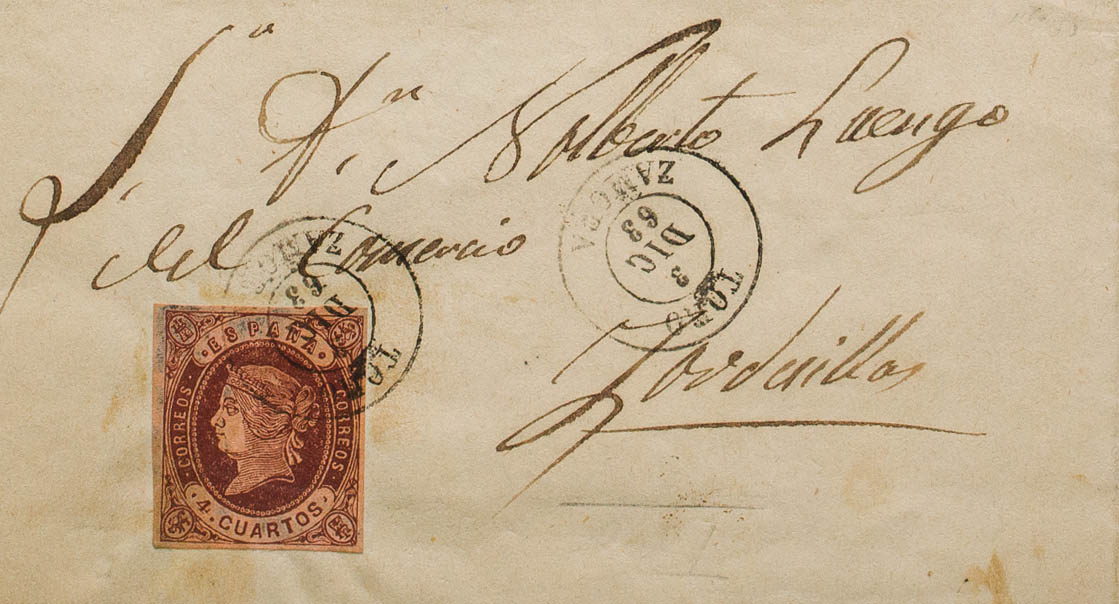 S.ʳ D.ⁿ Nolberto Luengo
del Comercio
Tordesillas
ZAMORA
3
DIC
63
TORO
ZAMORA
3
DIC
63
TORO
· ESPAÑA ·
CORREOS
CORREOS
4. CUARTOS